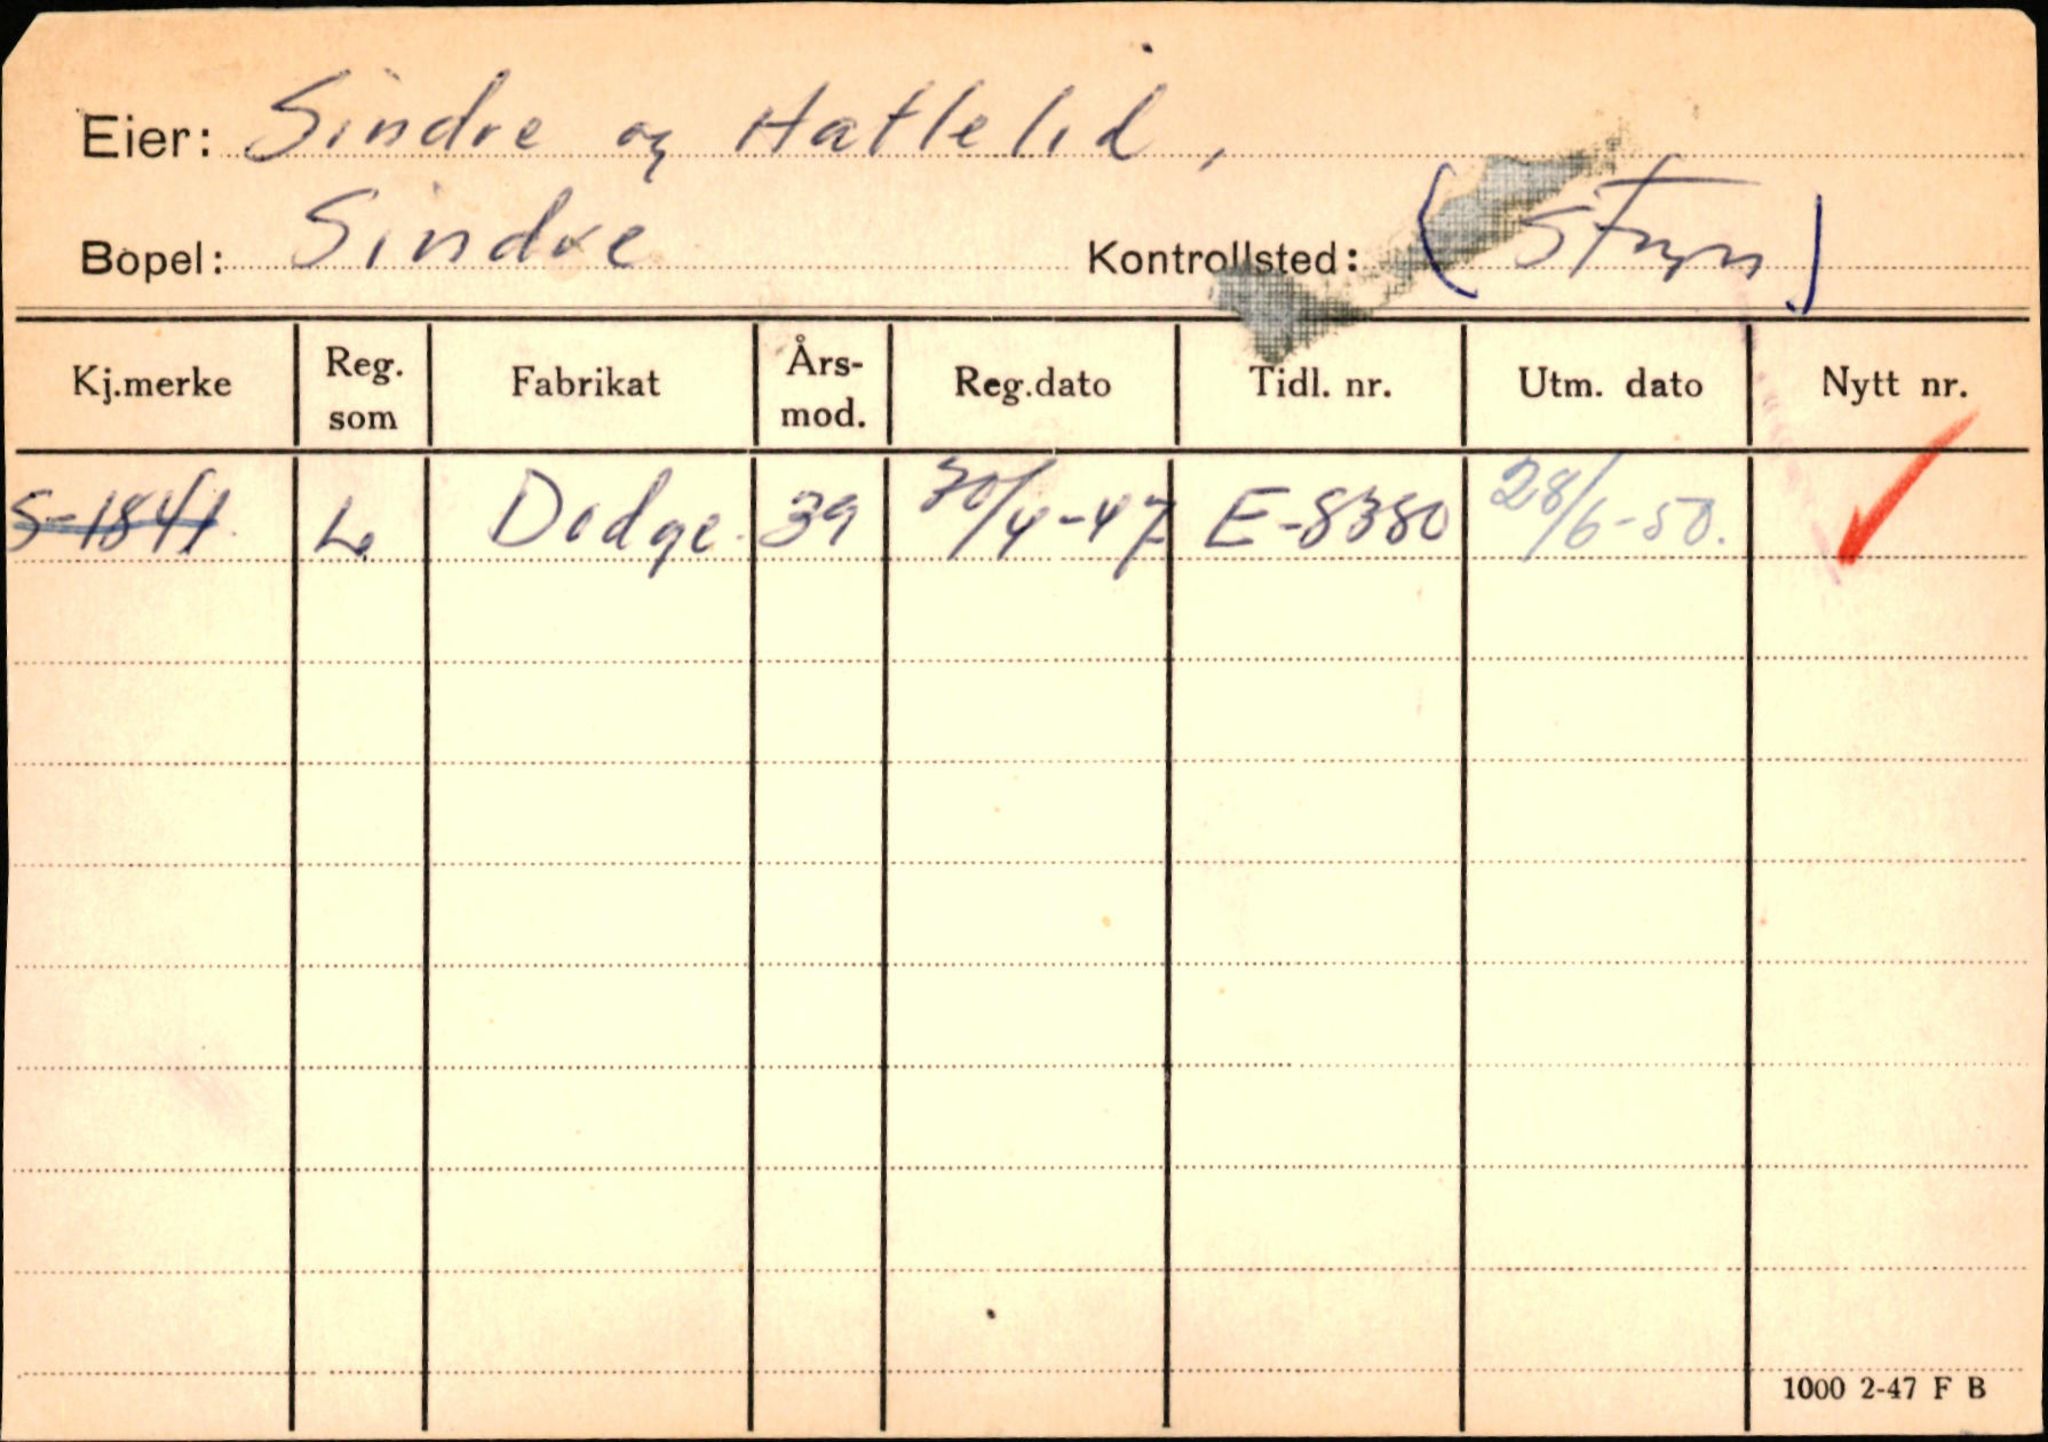 Eier: Sindre og Hatlelid,
Bopel: Sindre Kontrollsted: (Stryn)
Kj.merke Reg. som Fabrikat Års-mod. Reg.dato Tidl. nr. Utm. dato Nytt nr.
S-1841 L. Dodge. 39 30/4-47 E-8380 28/6-50.
1000 2-47 F B